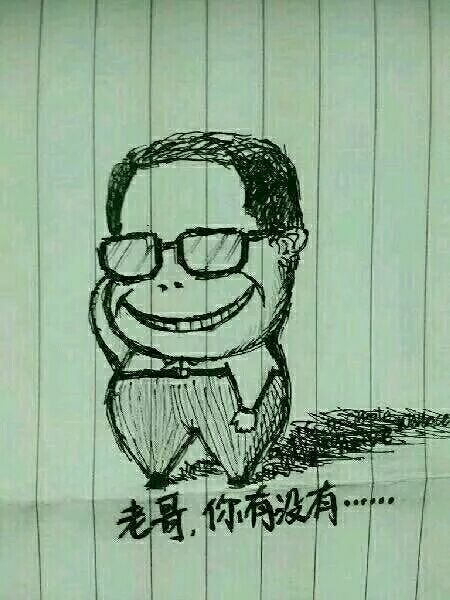 老哥，你有没有……